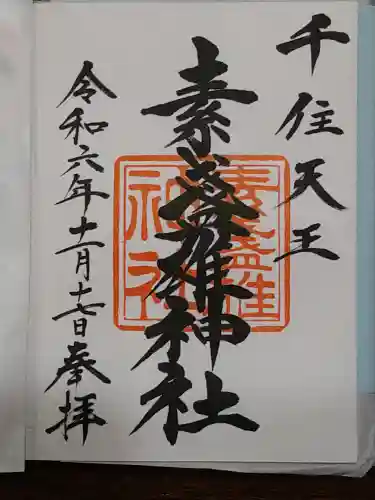 千住天王
素盞雄神社
素盞雄
神社
令和六年十一月十七日奉拝